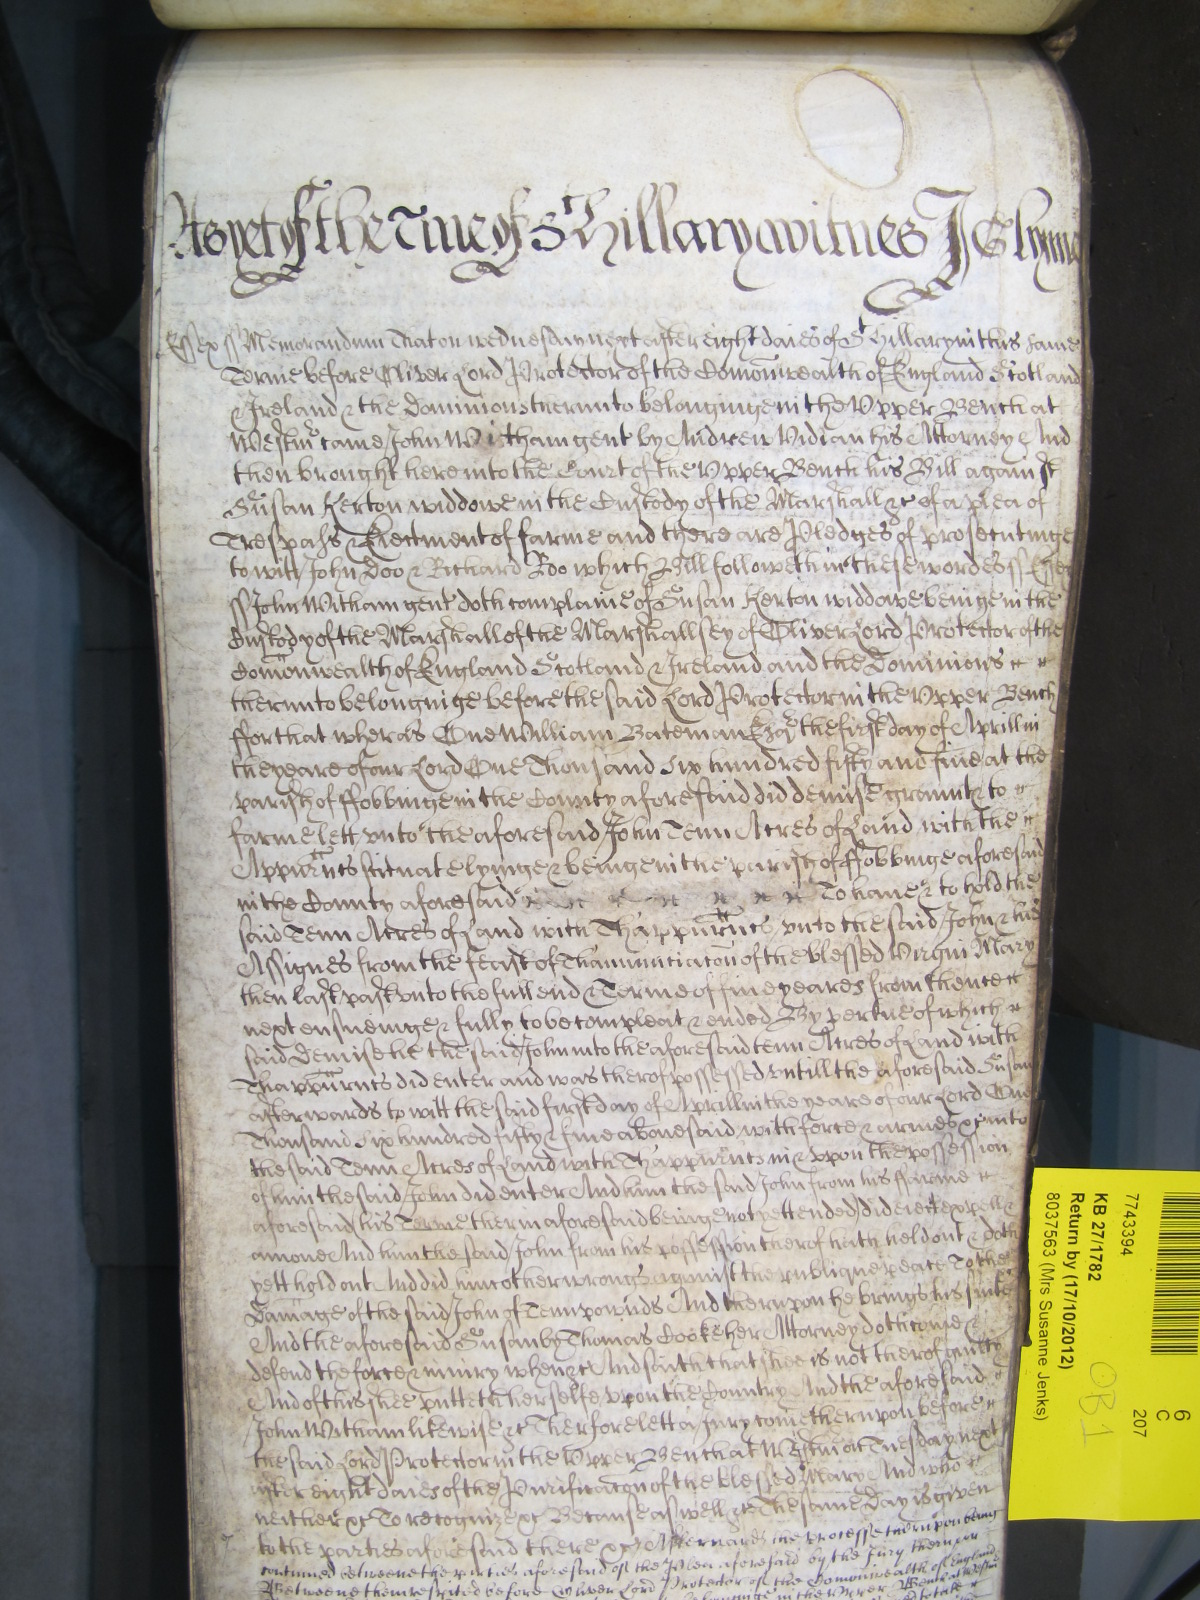 As yet of the Tme of St Hillary witnes J Glynne
Essex ss Memorandum That on wednesday next after eight daies of St Hillary in this same
Terme before Oliver Lord Protector of the Comonwealth of England Scotland
& Ireland & the Dominions therunto belonginge in the Upper Bench at
Westmr came John Witham gent by Andrew Vidian his Attorney And
then brought here into the Court of the Upper Bench his Bill against
Susan Kerton widdowe in the Custody of the Marshall &c of a plea of
Trespass & Eiectment of farme and there are Pledges of prosecutinge
to witt John Doo & Richard Roo which Bill followeth in these wordes ss Essex
ss John Witham gent doth complaine of Susan Kerton widdowe beinge in the
Custody of the Marshall of the Marshallsey of Oliver Lord Protector of the
Comonwealth of England Scotland & Ireland and the Dominions
therunto belonginge before the said Lord Protector in the Upper Bench
ffor that wheras One William Bateman Esqr the first day of Aprill in
the yeare of our Lord One Thousand six hundred fifty and five at the
parish of ffobbinge in the County aforesaid did demise graunt & to
farme lett unto the aforesaid John Tenn Acres of Land with the
Appurtnts scituate lyinge & beinge in the parish of ffobbinge aforesaid
in the County aforesaid To have & to hold the
said Tenn Acres of Land with Thappurtnts unto the said John & his
Assignes from the feast of Thanunciacon of the blessed Virgin Mary
then last past unto the full end & Terme of five yeares from thence
next ensueinge & fully to be compleat & ended By vertue of which
said Demise he the said John into the aforesaid tenn Acres of Land with
Thappurtnts did enter and was therof possessed untill the aforesaid Susan
afterwards to witt the said first day of Aprill in the yeare of our Lord One
Thousand six hundred fifty & five abovesaid with force & armes &c into
the said Tenn Acres of Land with Thappurtnts in & upon the possession
of him the said John did enter And him the said John from his ffarme
aforesaid his Terme therin aforesaid beinge not yett ended did eiect expell &
amove And him the said John from his possession therof hath held out & doth
yett hold out And did him other wrongs against the publique peace To the
Damage of the said John of Tenn pounds And therupon he brings his suite
And the aforesaid Susan by Thomas Cooke her Attorney doth come &
defend the force & iniury when &c And saith that shee is not therof guilty
And of this shee putteth herselfe upon the Country And the aforesaid
John Witham likewise &c Therfore lett a Jury come therupon before
the said Lord Protector in the Upper Bench at Westmr at Tuesday next
after eight daies of the Purificacon of the blessed Mary And who
neither &c To recognize &c Because as well &c The same Day is given
to the parties aforesaid there &c Afterwards the processe therupon being
continued Betweene the parties aforesaid of the Plea aforesaid by the Jury therupon
Betweene them respited before Oliver Lord Protector of the Comonwealth of England
6
C
207
7743394
KB 27/1782
Return by (17/10/2012)
8037563 (Mrs Susanne Jenks)
OB1